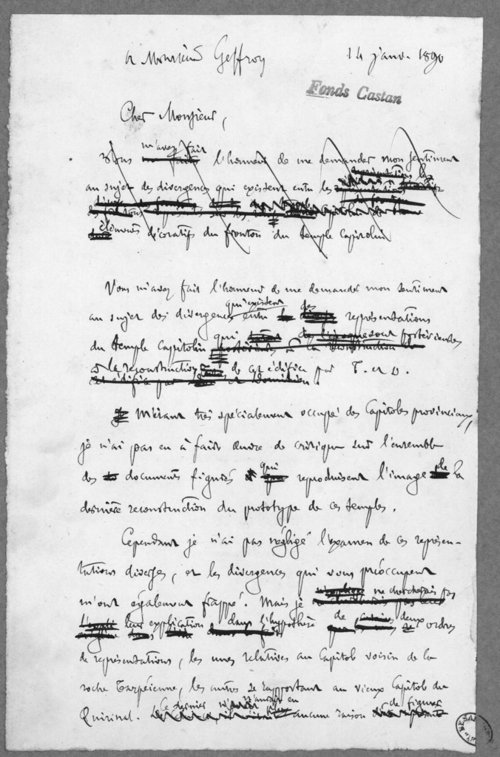 à Monsieur Geffroy 14 janv. 1890
Fonds Castan
Cher Monsieur,
Vous m'avez fait l'honneur de me demander mon sentiment
au sujet des divergences qui existent entre les
éléments décoratifs du fronton du temple Capitolin
Vous m'avez fait l'honneur de me demander mon sentiment
au sujet des divergences qui existent entre des représentations
du temple Capitolin qui sont postérieures
à la reconstruction de cet édifice par T. et D.
M'étant très spécialement occupé des Capitoles provinciaux,
je n'ai pas eu à faire œuvre de critique sur l'ensemble
des documents figurés qui reproduisent l'image de la
dernière reconstruction du prototype de ces temples.
Cependant je n'ai pas négligé l'examen de ces représen-
tations diverses, et les divergences qui vous préoccupent
m'ont également frappé. Mais je ne cherchais pas
leur explication dans l'hypothèse de deux ordres
de représentations, les unes relatives au Capitole voisin de la
roche tarpéienne, les autres se rapportant au vieux Capitole du
Quirinal. Ce dernier n'ayant eu aucune raison de figurer